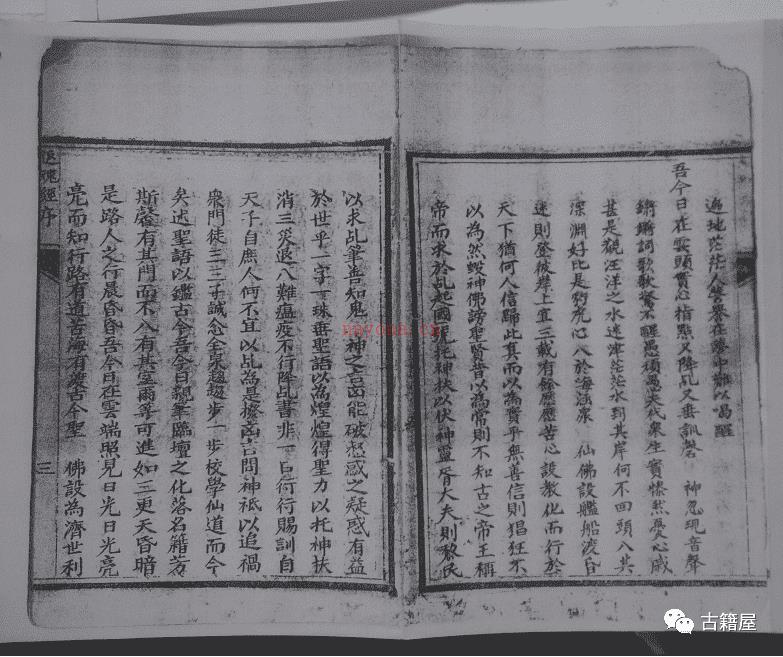 遍地茫茫人昏暴在夢中難以喝醒
吾今日在雲頭實心指點又降乩又垂訓磬 神忽現音聲
鏘鏘詞歌歌 不醒愚頑愚夫代衆生實慘然憂心感
甚是觀汪洋之水迷津茫茫水到其岸何不回頭入其
深淵好比是豺虎心入於海涵泉 仙佛設艦船渡昏
迷則登彼岸上宜三載有餘歷歷苦心設教化而行於
天下猶何人信歸此真而以為實乎無善信則猖狂不
以為然毀神佛謗聖賢皆以為常則不知古之帝王稱
帝而求於乩起國 托神扶以伏神靈 大夫則 民
以求乩筆善知鬼神之吉凶能破愁惑之疑惑有益
於世乎一字一珠垂聖語以為煌煌得聖力以托神扶
消三災退八難瘟疫不行降乩書非一日衍衍賜訓自
天子自庶人何不宜以乩為是 凶吉問神祇以追禍
衆門徒三三子誠念全 趨趨步一步校學仙道而今
矣述聖語以鑑古今吾今日親筆臨壇之化落名籍芳
斯馨有其門而不入有其室爾等可進如三更天昏暗
是路人之行晨昏昏吾今日在雲端照見日光日光亮
亮而知行路有道苦海有慶古今聖 佛設為濟世利
經序
三
nayona.cn
古籍屋